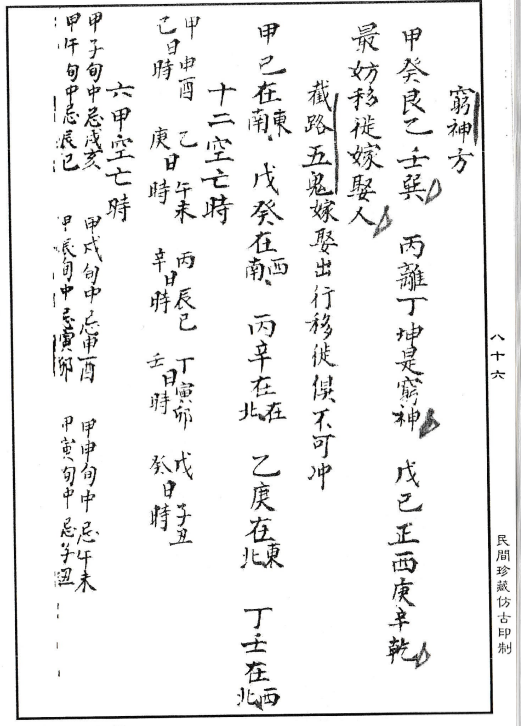 窮神方
甲癸艮乙壬巽 丙離丁坤是窮神 戊己正西庚辛乾
最妨移徙嫁娶人
截路五鬼嫁娶出行移徙俱不可冲
甲己在東南 戊癸在西南 丙辛在在北 乙庚在東北 丁壬在西北
十二空亡時
甲己日申酉時 乙庚日午未時 丙辛日辰巳時 丁壬日寅卯時 戊癸日子丑時
六甲空亡時
甲子旬中忌戌亥 甲戌旬中忌申酉 甲申旬中忌午未
甲午旬中忌辰巳 甲辰旬中忌寅卯 甲寅旬中忌子丑
八十六
民間珍藏仿古印制